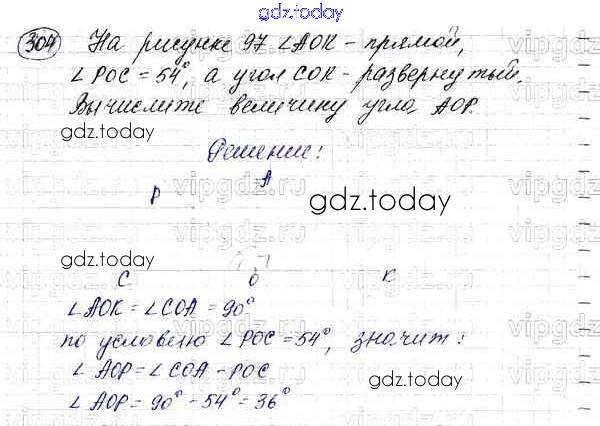 gdz.today
304 На рисунке 97 ∠AOK - прямой,
∠POC = 54°, а угол COK - развернутый.
Вычислите величину угла AOP.
gdz.today
Решение:
A
P
gdz.today
gdz.today
C O K
∠AOK = ∠COA = 90°
по условию ∠POC = 54°, значит:
∠AOP = ∠COA - POC
gdz.today
∠AOP = 90° - 54° = 36°